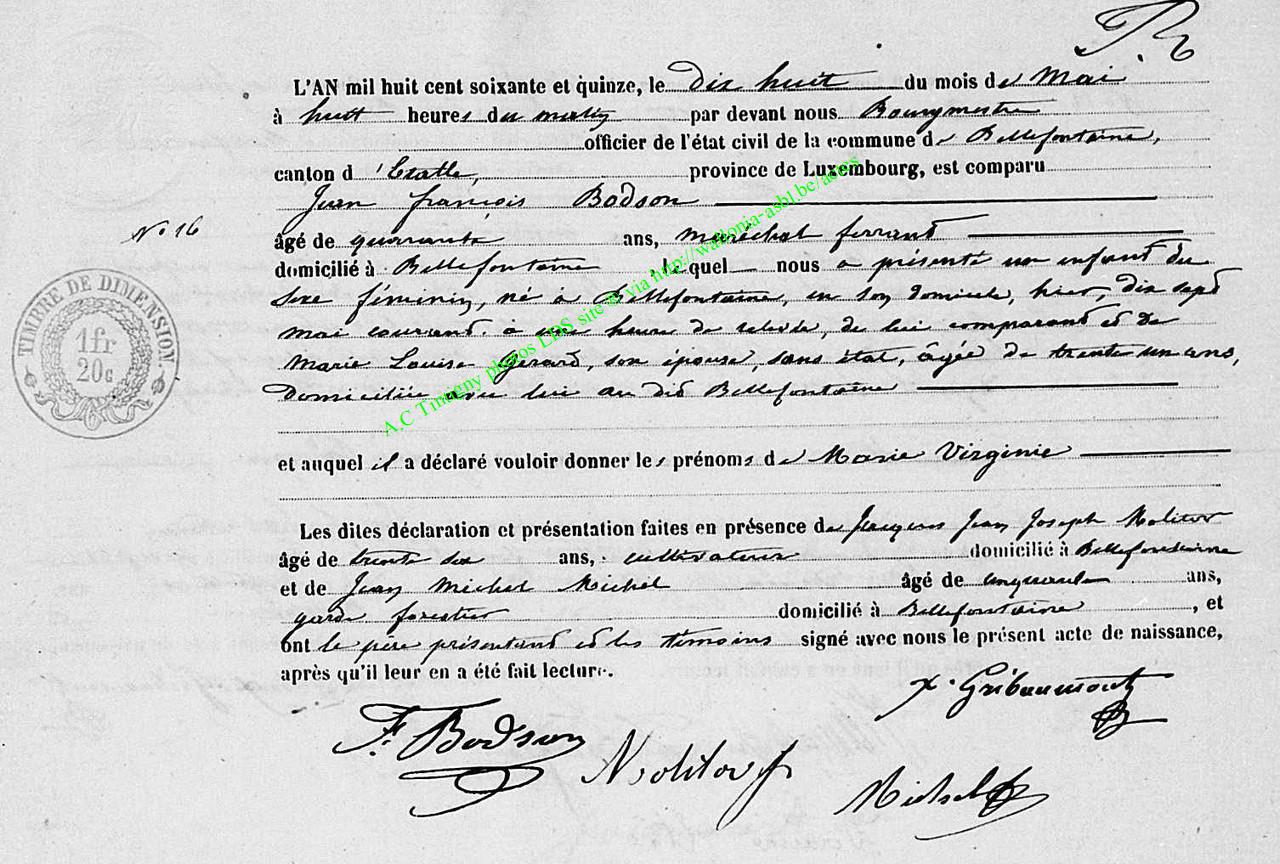 L'AN mil huit cent soixante et quinze, le dix huit du mois de Mai
à huit heures du matin par devant nous Bourgmestre
officier de l'état civil de la commune de Bellefontaine,
canton d'Etalle, province de Luxembourg, est comparu
Jean françois Bodson
N° 16
âgé de quarante ans, maréchal ferrant
domicilié à Bellefontaine lequel nous a présenté un enfant du
sexe féminin, né à Bellefontaine, en son domicile, hier, dix sept
mai courant à une heure de relevée, de lui comparant et de
Marie Louise Gérard, son épouse, sans état, âgée de trente un ans,
Domiciliée avec lui au dit Bellefontaine
et auquel il a déclaré vouloir donner les prénoms de Marie Virginie
Les dites déclaration et présentation faites en présence de Jacques Jean Joseph Molitor
âgé de trente ans, cultivateur domicilié à Bellefontaine
et de Jean Michel Michel âgé de cinquante ans,
garde forestier domicilié à Bellefontaine, et
ont le père présentant et les témoins signé avec nous le présent acte de naissance,
après qu'il leur en a été fait lecture.
X. Gribaumont
F. Bodson
Molitor
Michel
TIMBRE DE DIMENSION.
1 fr
20 c
A.C Tintigny photos LDS site via http://wallonia-asbl.be/actes